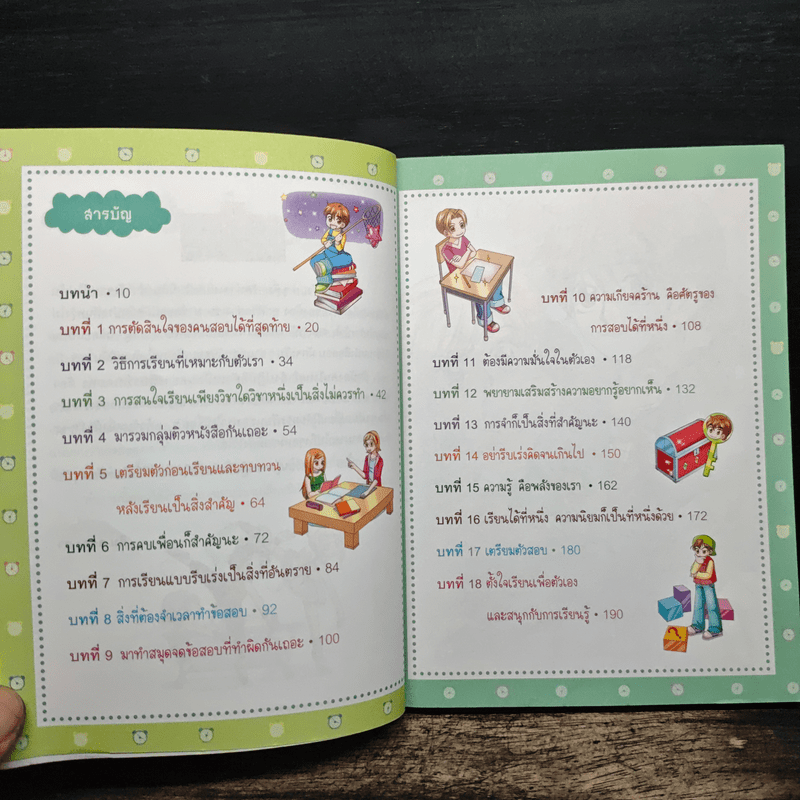 สารบัญ
บทนำ • 10
บทที่ 1 การตัดสินใจของคนสอบได้ที่สุดท้าย • 20
บทที่ 2 วิธีการเรียนที่เหมาะกับตัวเรา • 34
บทที่ 3 การสนใจเรียนเพียงวิชาใดวิชาหนึ่งเป็นสิ่งไม่ควรทำ • 42
บทที่ 4 มารวมกลุ่มติวหนังสือกันเถอะ • 54
บทที่ 5 เตรียมตัวก่อนเรียนและทบทวน
หลังเรียนเป็นสิ่งสำคัญ • 64
บทที่ 6 การคบเพื่อนก็สำคัญนะ • 72
บทที่ 7 การเรียนแบบรีบเร่งเป็นสิ่งที่อันตราย • 84
บทที่ 8 สิ่งที่ต้องจำเวลาทำข้อสอบ • 92
บทที่ 9 มาทำสมุดจดข้อสอบที่ทำผิดกันเถอะ • 100
บทที่ 10 ความเกียจคร้าน คือศัตรูของ
การสอบได้ที่หนึ่ง • 108
บทที่ 11 ต้องมีความมั่นใจในตัวเอง • 118
บทที่ 12 พยายามเสริมสร้างความอยากรู้อยากเห็น • 132
บทที่ 13 การจำก็เป็นสิ่งที่สำคัญนะ • 140
บทที่ 14 อย่ารีบเร่งคิดจนเกินไป • 150
บทที่ 15 ความรู้ คือพลังของเรา • 162
บทที่ 16 เรียนได้ที่หนึ่ง ความนิยมก็เป็นที่หนึ่งด้วย • 172
บทที่ 17 เตรียมตัวสอบ • 180
บทที่ 18 ตั้งใจเรียนเพื่อตัวเอง
และสนุกกับการเรียนรู้ • 190